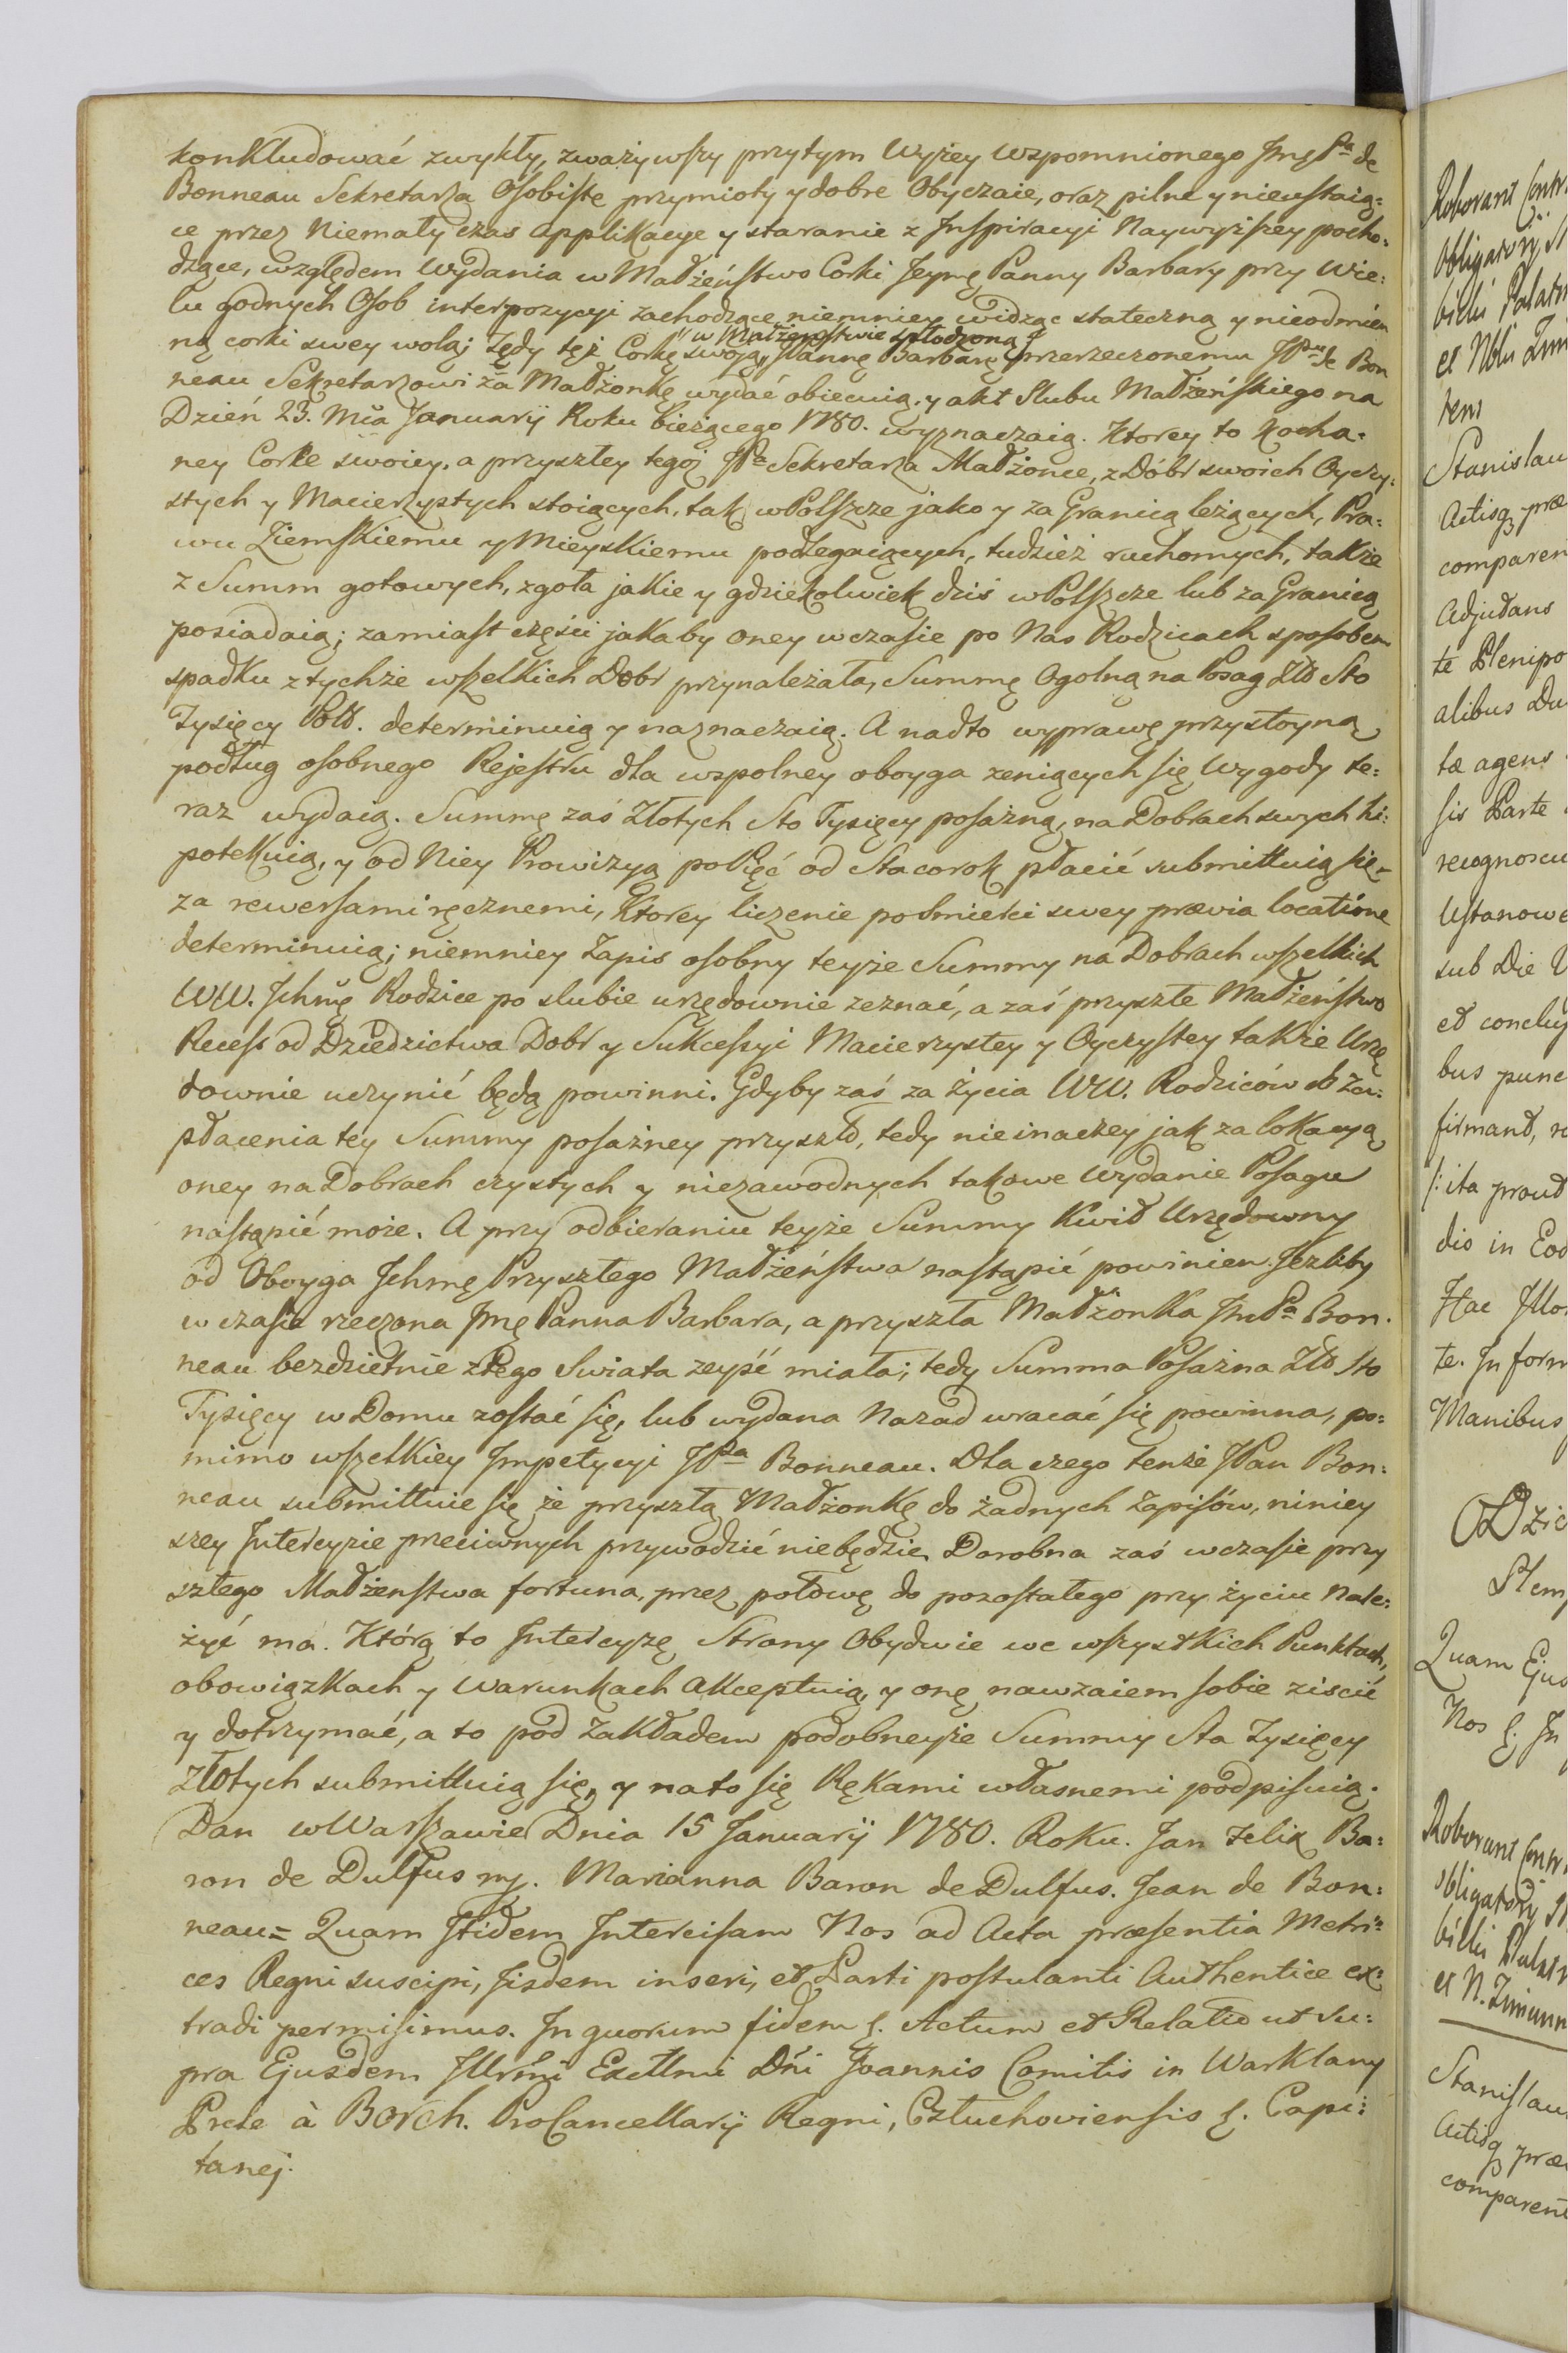 konkludować zwykły, zważywszy przytym Wyżey wspomnionego Jmę Pa de
Bonneau Sekretarza Osobiste przymioty y dobre Obyczaie, oraz pilne y nieustaią:
ce przez Niemały czas applikacye y staranie z Inspiracyi Naywyższey pocho:
dzące, względem Wydania w Małżeństwo Corki Jeymę Panny Barbary przy Wie:
lu godnych Osob interpozycyi zachodzące, niemniey widząc stateczną y nieodmien
ną corki swey wolą; Tędy tęż Corkę swoją "w Małżenstwie spłodzoną" JPannę Barbarę przerzeczonemu JPnu de Bon
neau Sekretarzowi za Małżonkę wydać obiecuią, y akt Slubu Małżeńskiego na
Dzień 23. Mca Januarij Roku bieżącego 1780. wyznaczaią. Ktorey to Kocha:
ney Corce swoiey, a przyszłey tegoż JPa Sekretarza Małżonce, z Dóbr swoich Oyczy:
stych y Macierzystych stoiących, tak w Polszcze jako y za Granicą leżących, Pra:
wu Ziemskiemu y Mieyskiemu podlegaiących, tudzież ruchomych, także
z Summ gotowych, zgoła jakie y gdziekolwiek dziś w Polszcze lub za Granicą
posiadaią; zamiast części jakaby oney w czasie po Nas Rodzicach sposobem
spadku z tychże wszelkich Dobr przynależała, Summę Ogolną na Posag Złł Sto
Tysięcy Poll. determinuią y naznaczaią. A nadto wyprawę przystoyną
podług osobnego Rejestru dla wspolney oboyga żeniących się Wygody te:
raz wydaią. Summę zaś Złotych Sto Tysięcy posażną, na Dobrach swych hi:
potekuią, y od Niey Prowizyą po Pięć od Sta corok płacić submittuią się
za rewersami ręcznemi, Ktorey liczenie po śmierci swey prævia locatione
determinuią; niemniey Zapis osobny teyże Summy na Dobrach wszelkich
WW. Ichmę Rodzice po slubie urzędownie zeznać, a zaś przyszłe Małżeństwo
Recess od Dziedzictwa Dobr y Sukcessyi Macierzystey y Oyczystey także Urzę
downie uczynić będą powinni. Gdyby zaś za życia WW. Rodziców do za:
płacenia tey Summy posażney przyszło, tedy nieinaczey jak za lokacyą
oney na Dobrach czystych y niezawodnych takowe Wydanie Posagu
nastąpić może. A przy odbieraniu teyże Summy Kwit Urzędowny
od Oboyga Ichmę Przyszłego Małżeństwa nastąpić powinien. Jeżliby
w czasie rzeczona Jmę Panna Barbara, a przyszła Małżonka Jm Pa Bon:
neau bezdzietnie z tego Swiata zeyść miała; tedy Summa Posażna Złł Sto
Tysięcy w Domu zostać się, lub wydana Nazad wracać się powinna, po:
mimo wszelkiey Impetycyi JPa Bonneau. Dla czego tenże JPan Bon:
neau submittuie się że przyszłą Małżonkę do żadnych Zapisów, niniey
szey Intercyzie przeciwnych przywodzić niebędzie. Dorobna zaś w czasie przy
szłego Małżenstwa fortuna, przez połowę do pozostałego przy życiu Nale:
żyć ma. Którą to Intercyzę Strony Obydwie we wszystkich Punktach,
obowiązkach y Warunkach akceptuią, y onę nawzaiem sobie ziscić
y dotrzymać, a to pod Zakładem podobneyże Summy Sta Tysięcy
Złotych submittuią się, y na to się Rękami własnemi podpisuią.
Dan w Warszawie Dnia 15 Januarij 1780. Roku. Jan Felix Ba:
ron de Dulfus mj. Marianna Baron de Dulfus. Jean de Bon:
neau = Quam Itidem Intercisam Nos ad Acta præsentia Metri:
ces Regni suscipi, Iisdem inseri, et Parti postulanti Authentice ex:
tradi permisimus. In quorum fidem &. Actum et Relatio ut su:
pra Ejusdem Illrmi Excllmi Dni Joannis Comitis in Warklany
Prele à Borch. ProCancellarij Regni, Człuchoviensis &. Capi:
tanej.
Roborant Contr
Obligatorij St
bielis Palatin
et Nbli Zim
tem
Stanislau
Actisq præ
comparen
Adjutans
te Plenipo
alibus Du
tæ agens
sis Parte
recognoscu
Ustanowe
sub Die
et conclu
bus punc
firmand, r
/: ita prout
dio in Eod
Hac Mo
te. In form
Manibus
Dzie
Plem
Quam Ejus
Nos &. In
Roborant Contr
Obligatorij St
bielis Palat
et N. Zimunn
Stanislau
Actisq præ
comparen